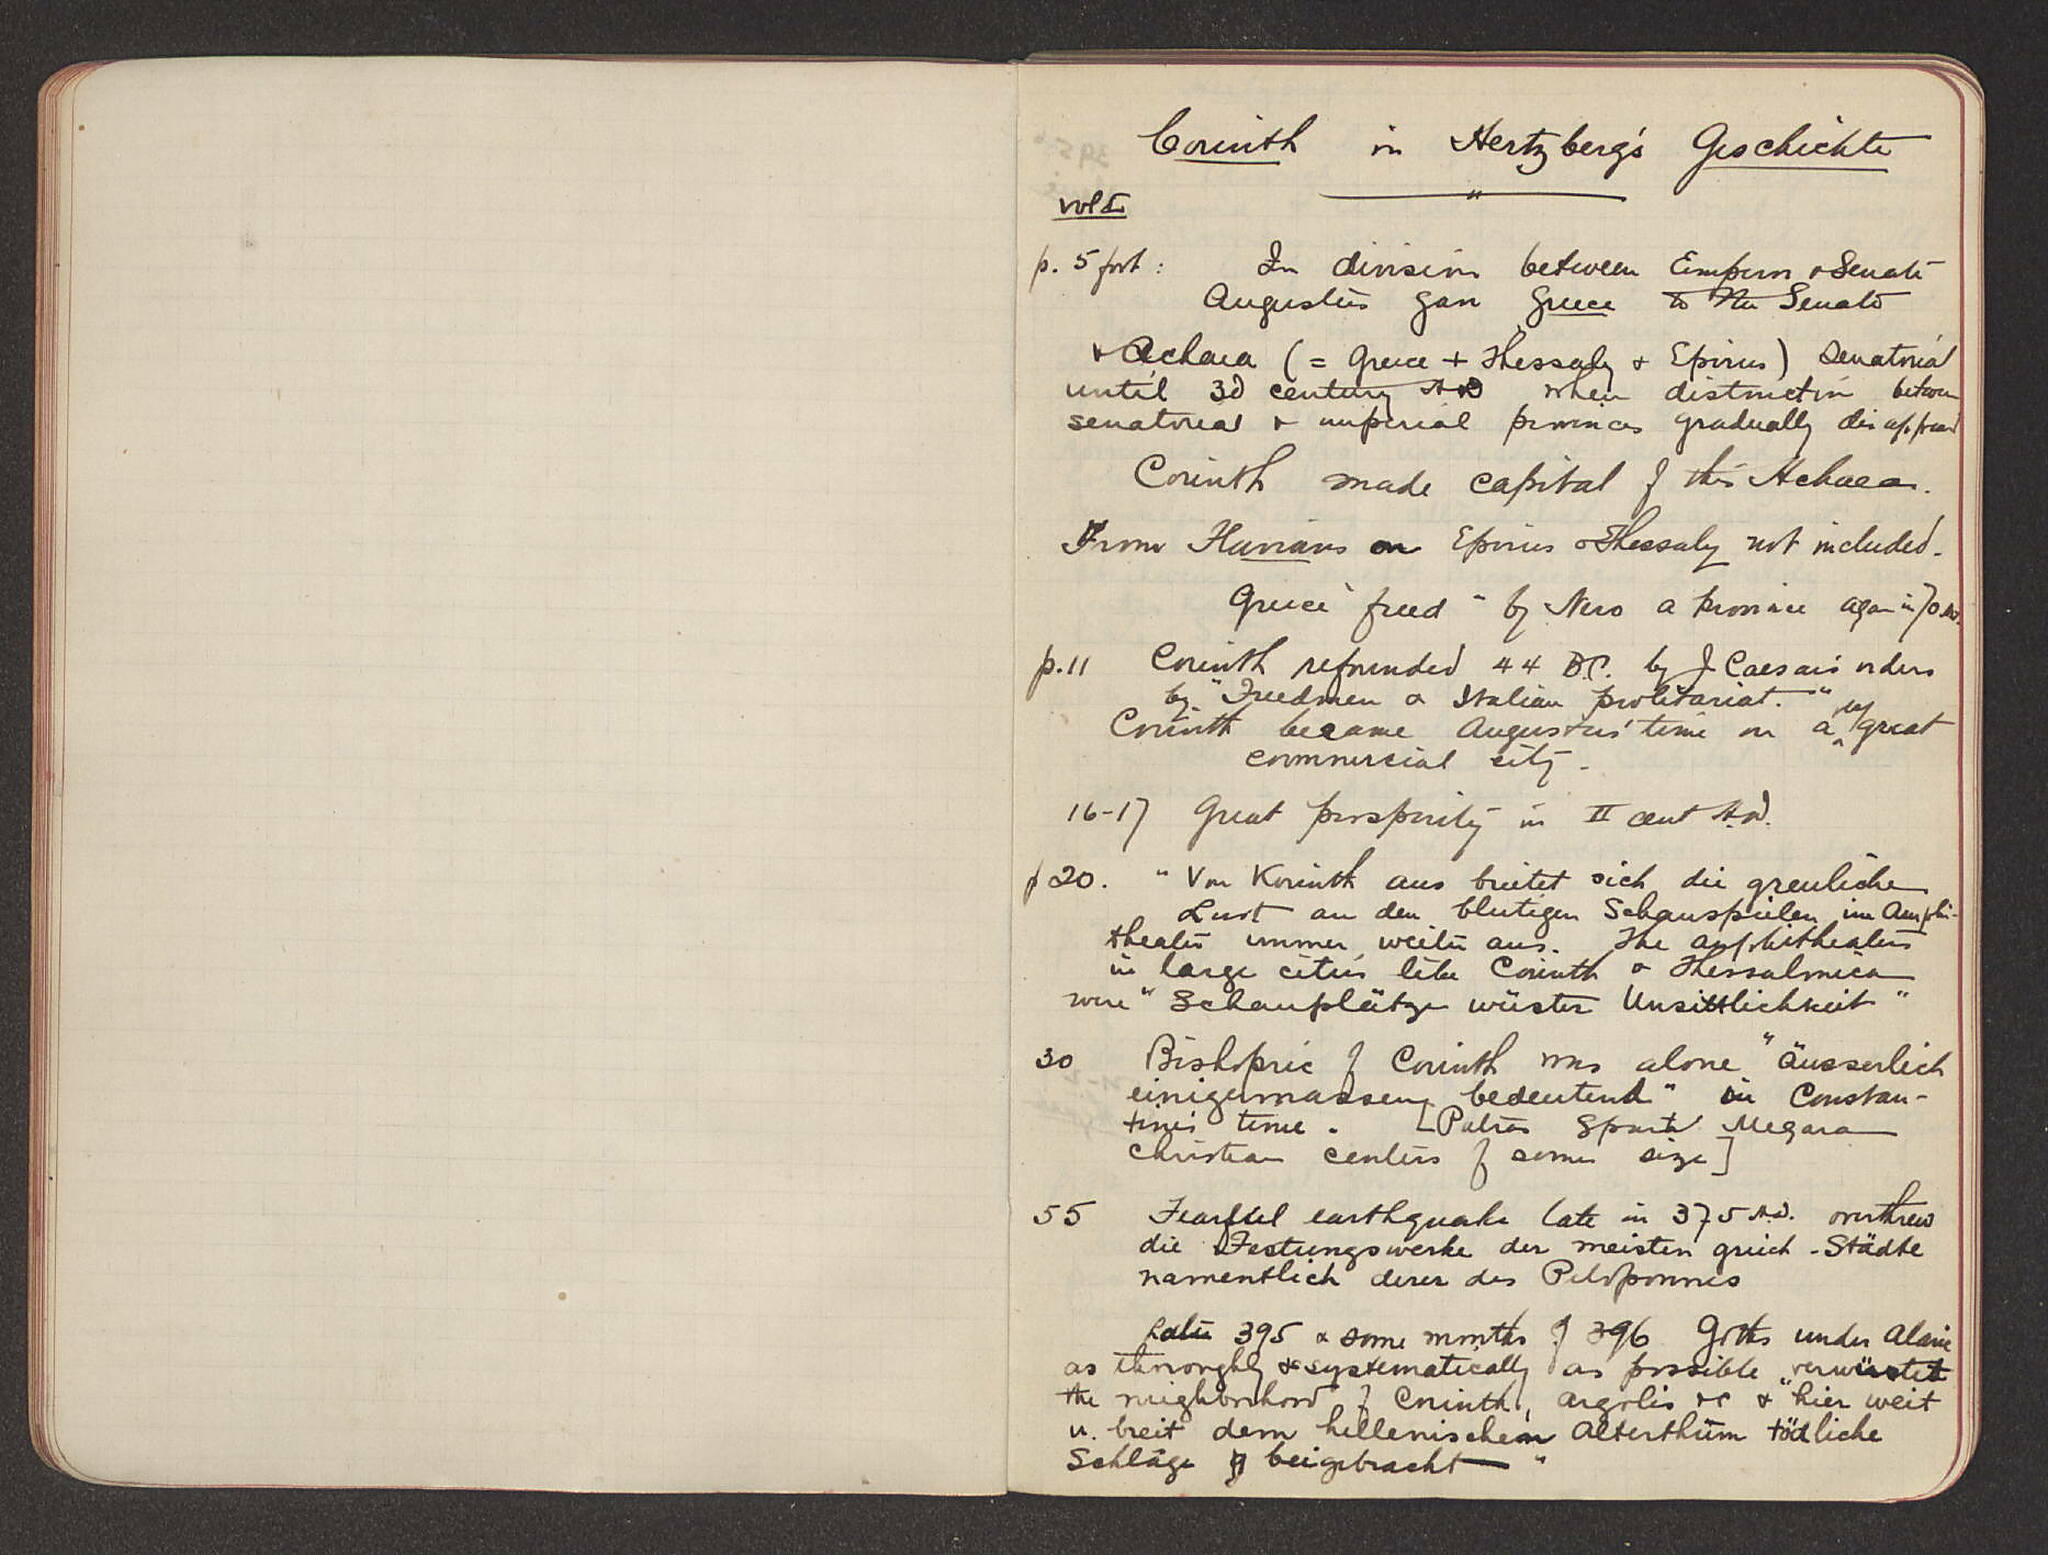 Corinth in Hertzberg's Geschichte
vol I
p. 5 foot : In division between Emperor & Senate
Augustus gave Greece to the Senate
& Achaea (= Greece + Thessaly & Epirus) senatorial
until 3d century AD when distinction between
senatorial & imperial provinces gradually disappeared
Corinth made capital of this Achaea.
From Flavians on Epirus & Thessaly not included.
Greece "freed" by Nero a province again in 70 AD.
p. 11 Corinth refounded 44 B.C. by J Caesar's orders
by "Freedmen & Italian proletariat."
Corinth became Augustus' time on a very great
commercial city.
16-17 Great prosperity in II cent A.D.
p 20. "Von Korinth aus breitet sich die greuliche
Lust an den blutigen Schauspielen im Amphi-
theater immer weiter aus. The amphitheaters
in large cities like Corinth & Thessalonica
were "Schauplätze wüster Unsittlichkeit"
30 Bishopric of Corinth was alone "äusserlich
einigermassen bedeutend" in Constan-
tine's time. [Patras Sparta Megara
Christian centers of some size]
55 Fearful earthquake late in 375 A.D. overthrew
die Festungswerke der meisten griech. Städte
namentlich derer des Peloponnes
Late 395 & some months of 396 Goths under Alaric
as thoroughly & systematically as possible verwüstet
the neighborhood of Corinth, Argolis &c & "hier weit
u. breit dem hellenischen Alterthum tödliche
Schläge beigebracht"